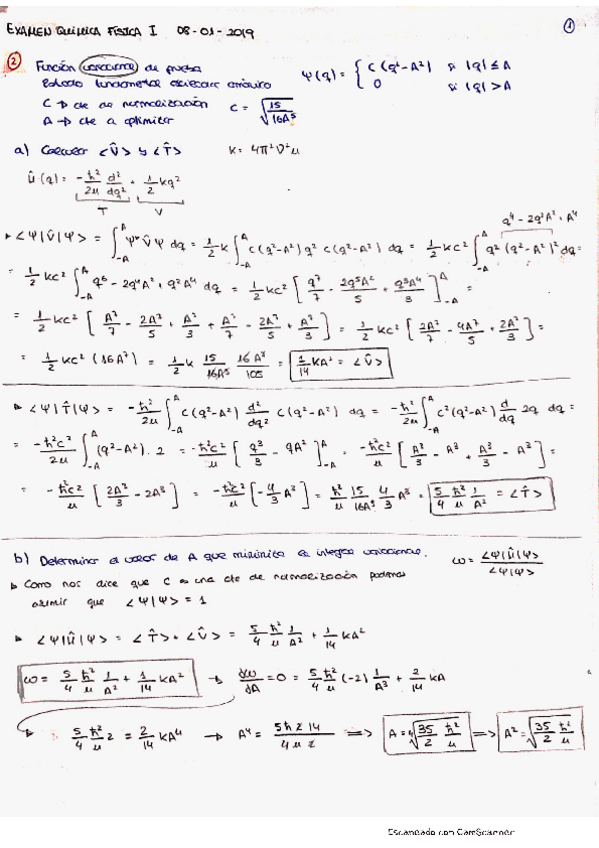 EXAMEN QUÍMICA FÍSICA I 08-01-2019
1
2 Función variacional de prueba
Estado fundamental oscilador armónico
ψ(q) = { C(q²-A²) si |q| ≤ A
0 si |q| > A
C → cte de normalización C = √(15/16A⁵)
A → cte a optimizar
a) Calcular <V̂> y <T̂> K = 4π²ν²μ
Ĥ(q) = -ħ²/2μ d²/dq² + 1/2 kq²
T V
<ψ|V̂|ψ> = ∫_{-A}^{A} ψ* V̂ ψ dq = 1/2 k ∫_{-A}^{A} C(q²-A²) q² C(q²-A²) dq = 1/2 kC² ∫_{-A}^{A} q² (q²-A²)² dq =
q⁴ - 2q²A² + A⁴
= 1/2 kC² ∫_{-A}^{A} q⁶ - 2q⁴A² + q²A⁴ dq = 1/2 kC² [q⁷/7 - 2q⁵A²/5 + q³A⁴/3]_{-A}^{A} =
= 1/2 kC² [A⁷/7 - 2A⁷/5 + A⁷/3 + A⁷/7 - 2A⁷/5 + A⁷/3] = 1/2 kC² [2A⁷/7 - 4A⁷/5 + 2A⁷/3] =
= 1/2 kC² (16A⁷) = 1/2 k 15/16A⁵ 16A⁷/105 = 1/14 kA² = <V̂>
<ψ|T̂|ψ> = -ħ²/2μ ∫_{-A}^{A} C(q²-A²) d²/dq² C(q²-A²) dq = -ħ²/2μ ∫_{-A}^{A} C²(q²-A²) d/dq 2q dq =
= -ħ²C²/2μ ∫_{-A}^{A} (q²-A²)·2 = -ħ²C²/μ [q³/3 - qA²]_{-A}^{A} = -ħ²C²/μ [A³/3 - A³ + A³/3 - A³] =
= -ħ²C²/μ [2A³/3 - 2A³] = -ħ²C²/μ [-4/3 A³] = ħ²/μ 15/16A⁵ 4/3 A³ = 5/4 ħ²/μ 1/A² = <T̂>
b) Determinar el valor de A que minimiza la integral variacional. ω = <ψ|Ĥ|ψ>/<ψ|ψ>
Como nos dice que C es una cte de normalización podemos
asumir que <ψ|ψ> = 1
<ψ|Ĥ|ψ> = <T̂> + <V̂> = 5/4 ħ²/μ 1/A² + 1/14 kA²
ω = 5/4 ħ²/μ 1/A² + 1/14 kA² → dω/dA = 0 = 5/4 ħ²/μ (-2) 1/A³ + 2/14 kA
5/4 ħ²/μ 2 = 2/14 kA⁴ → A⁴ = 5ħ 2 14/4μ 2 => A = ⁴√(35/2 ħ²/μ) => A² = √(35/2 ħ²/μ)
Escaneado con CamScanner